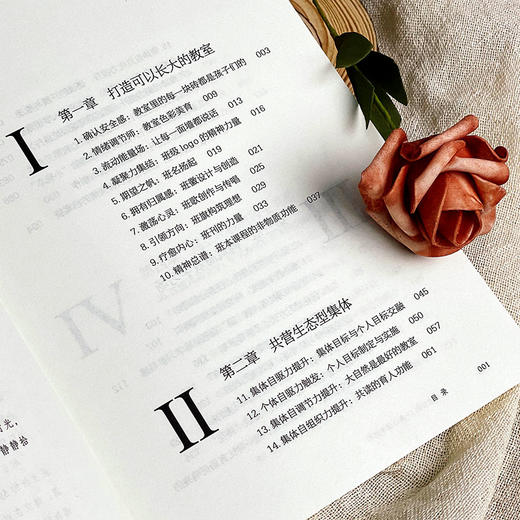 I
第一章 打造可以长大的教室 003
1. 确认安全感：教室里的每一块砖都是孩子们的
2. 情绪调节师：教室色彩美育 009
3. 流动能量场：让每一面墙都说话 013
4. 凝聚力集结：班级 logo 的精神力量 016
5. 期望之帆：班名扬起 019
6. 拥有归属感：班徽设计与创造 021
7. 激荡心灵：班歌创作与传唱 025
8. 引领方向：班旗构筑思想 029
9. 疗愈内心：班刊的力量 033
10. 精神总谱：班本课程的非物质功能 037
II
第二章 共营生态型集体
11. 集体自驱力提升：集体目标与个人目标交融 045
12. 个体自驱力触发：个人目标制定与实施 050
13. 集体自调节力提升：大自然是最好的教室 057
14. 集体自组织力提升：共读的育人功能 061
目 录 001
静静拾